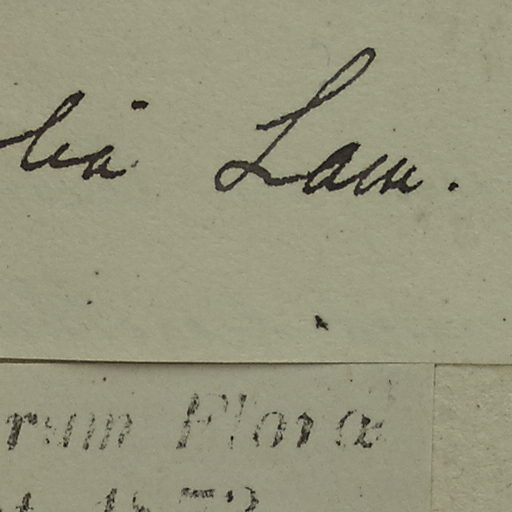 lia Lam.
rum Floræ